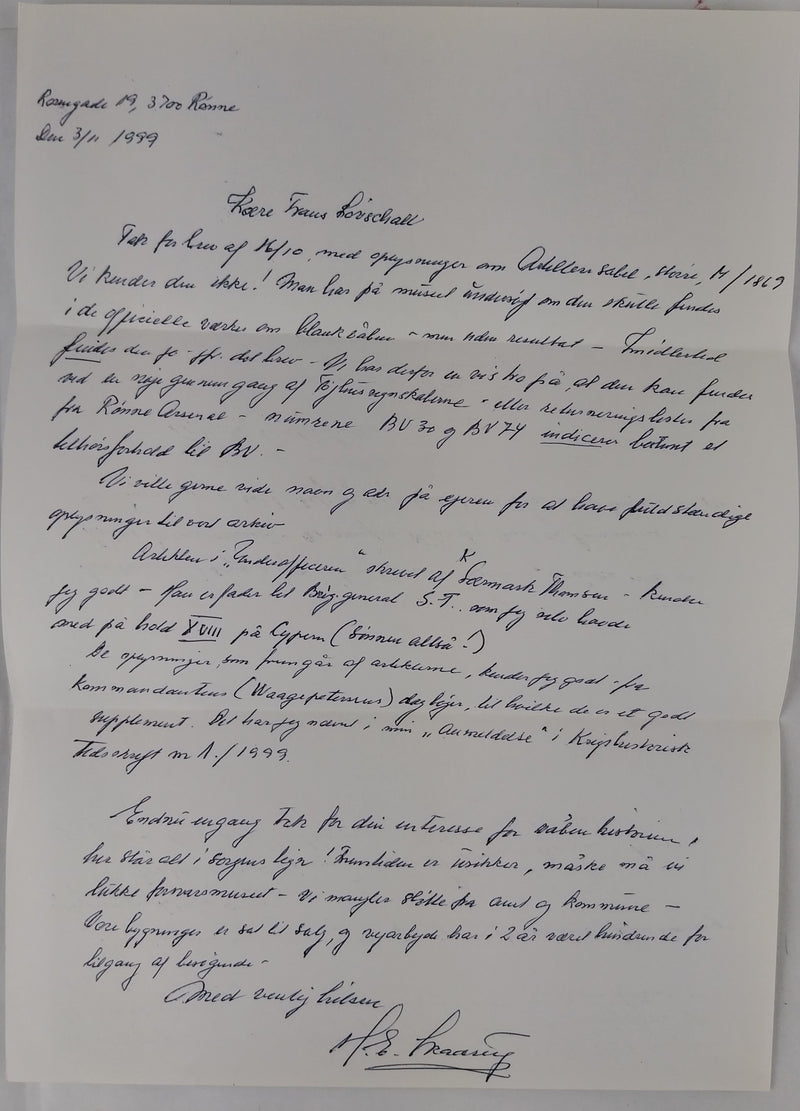 Rosengade 19, 3700 Rønne
Den 3/11 1999
Kære Frans Løvschall
Tak for brev af 16/10, med oplysninger om Artilleri sabel, større, M/1869
Vi kender den ikke! Man har på museet undersøgt om den skulle findes
i de officielle værker om blankvåben - men uden resultat - Imidlertid
findes den jo - jfr. dit brev - Vi har derfor en vis tro på, at den kan findes
ved en nøje gennemgang af Tøjhusregnskaberne - eller returneringslister fra
fra Rønne Arsenal - numrene BV 30 og BV 74 indicerer bestemt et
tilhørsforhold til BV. -
Vi ville gerne vide navn og adr på ejeren for at have fuldstændige
oplysninger til vort arkiv
Artiklen i "Underofficeren" skrevet af K Særmark Thomsen - kender
jeg godt - Han er fader til Brig.general S-T.. som jeg selv havde
med på hold XVIII på Cypern (sønnen altså!)
De oplysninger, som fremgår af artiklerne, kender jeg godt - fra
Kommandantens (Waagepetersens) dagbøger, til hvilke de er et godt
supplement. Det har jeg nævnt i min "Anmeldelse" i Krigshistorisk
Tidsskrift nr 1./1999.
Endnu engang tak for din interesse for våbenhistorien,
her står alt i sorgens tegn! Fremtiden er usikker, måske må vi
lukke forsvarsmuseet - Vi mangler støtte fra amt og kommune -
Vore bygninger er sat til salg, og vejarbejde har i 2 år været hindrende for
tilgang af besøgende -
Med venlig hilsen
H.E.